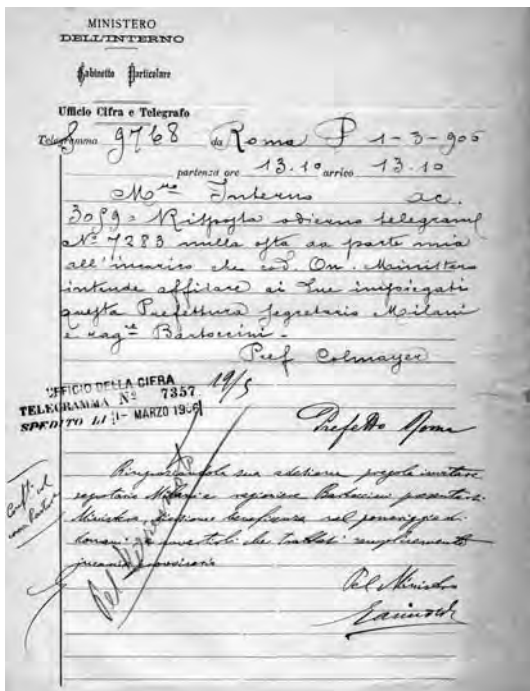 MINISTERO
DELL'INTERNO
Gabinetto Particolare
Ufficio Cifra e Telegrafo
Telegramma 9768 da Roma P 1-3-906
partenza ore 13.10 arrivo 13.10
M.ro Interno ac.
3059 = Risposta odierno telegramma
N° 7283 nulla osta da parte mia
all'incarico che cod. On. Ministero
intende affidare ai due impiegati
questa Prefettura segretario Milani
e rag.re Bartoccini -
Pref Colmayer
UFFICIO DELLA CIFRA
TELEGRAMMA N° 7357
SPEDITO LI 1- MARZO 1906
Prefetto Roma
Ringraziandola sua adesione pregola invitare
segretario Milani e ragioniere Bartoccini presentarsi
Ministero divisione beneficenza nel pomeriggio di
domani avvertoli che trattasi semplicemente
incarico provvisorio
Pel Ministro